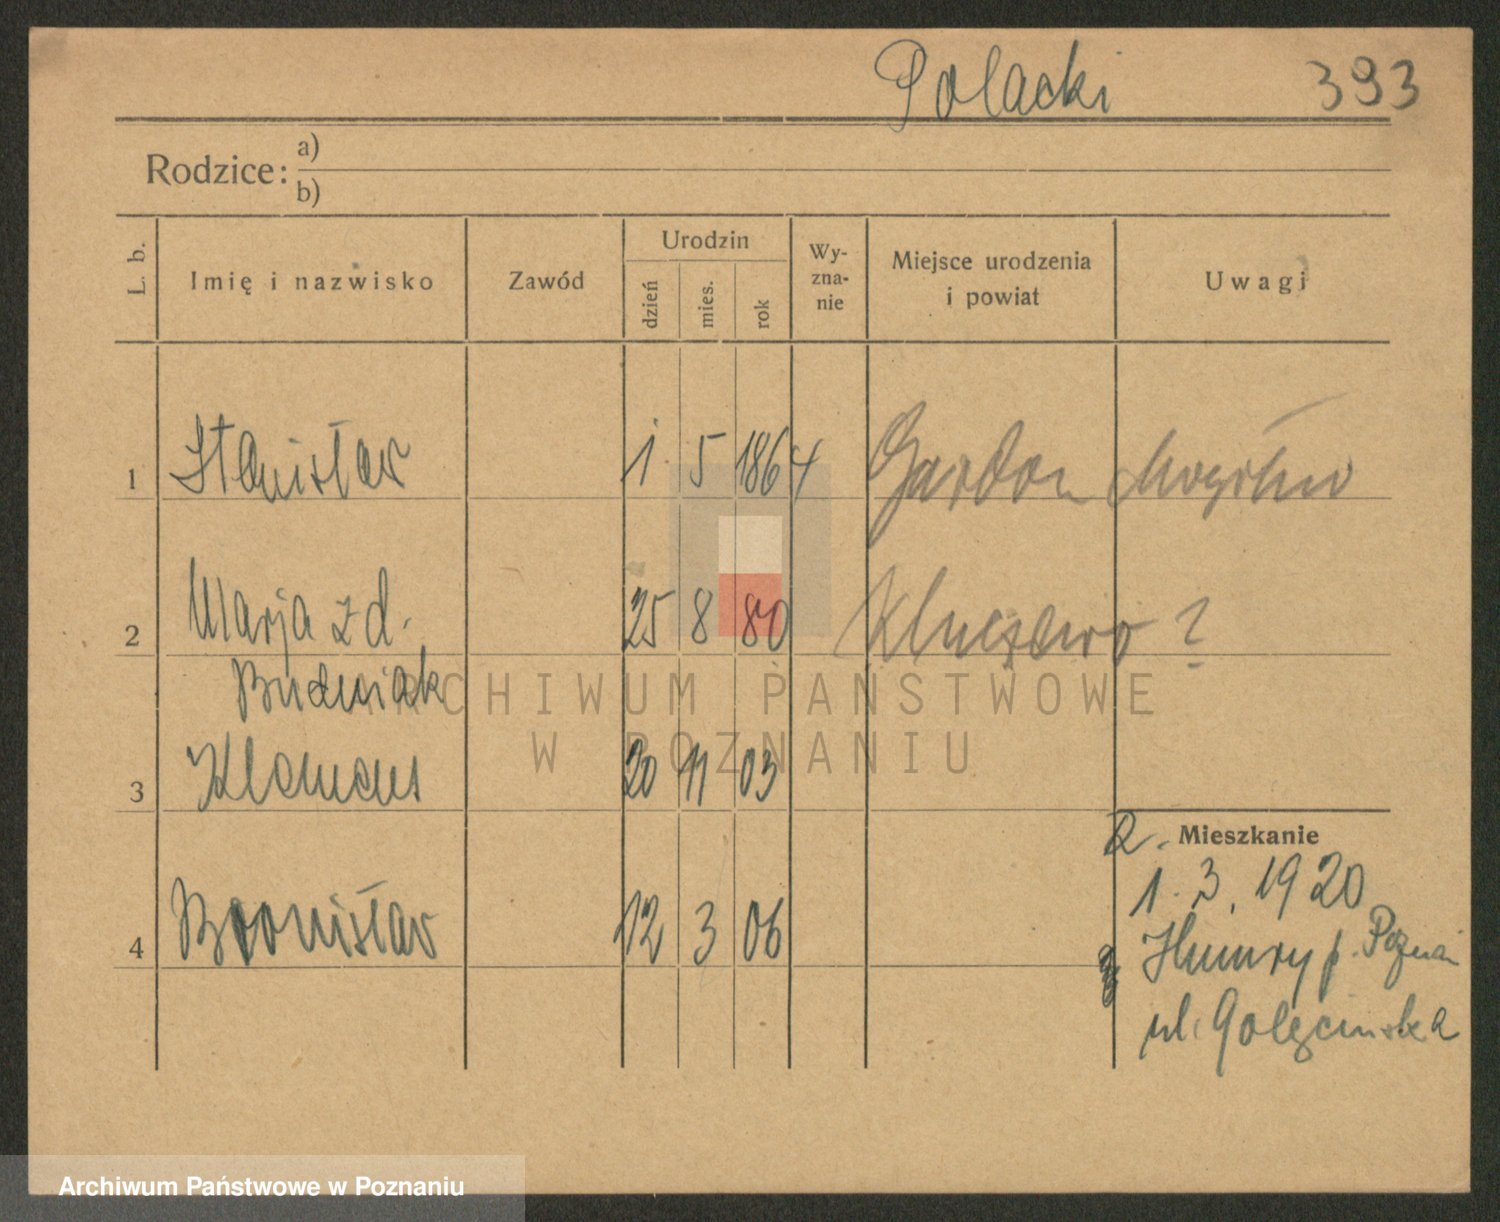 Polacki 393
Rodzice: a)
b)
L. b.
Imię i nazwisko
Zawód
Urodzin
dzień
mies.
rok
Wy-
zna-
nie
Miejsce urodzenia
i powiat
Uwagi
1 Stanisław 1 5 1864 Mogilno
2 Marja z d. 25 8 80 ?
Budniak
3 20 11 03
4 Bronisław 12 3 06
Mieszkanie
1. 3. 1920
p. Poznań
ul. Golęcińska
ARCHIWUM PAŃSTWOWE
W POZNANIU
Archiwum Państwowe w Poznaniu